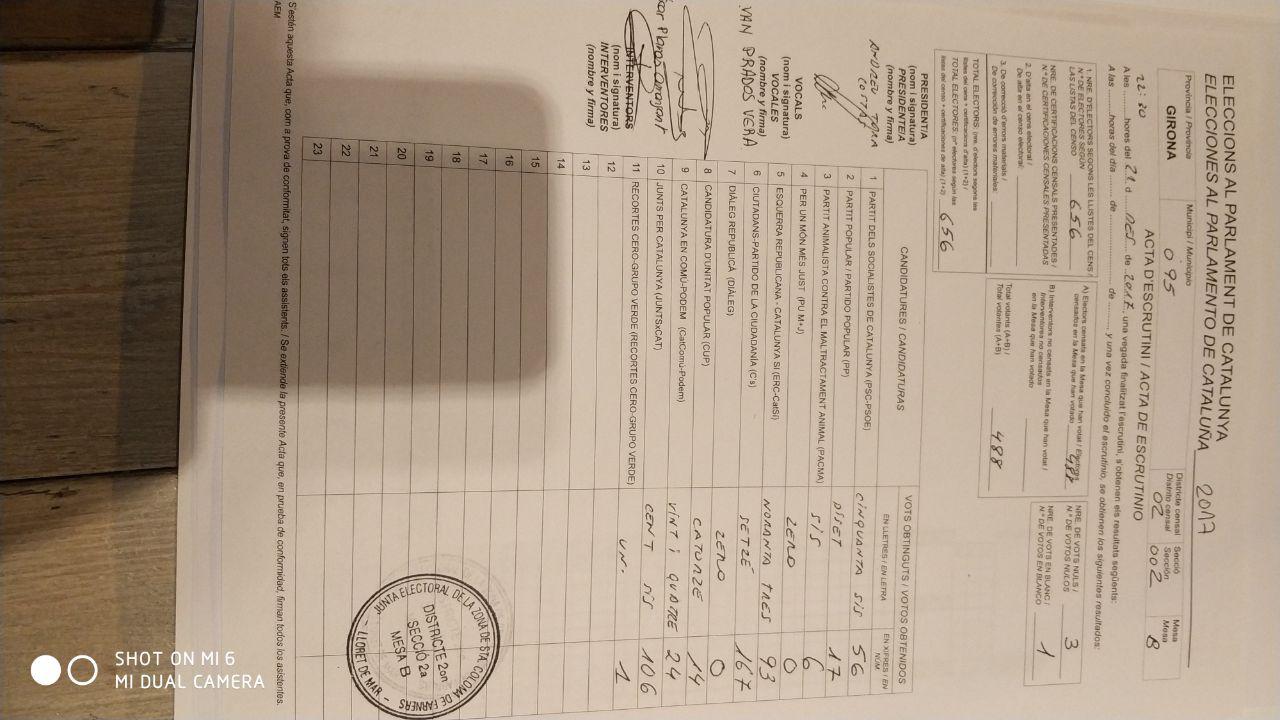 ELECCIONS AL PARLAMENT DE CATALUNYA
ELECCIONES AL PARLAMENTO DE CATALUÑA 2017
Província / Provincia
GIRONA
Municipi / Municipio
095
Districte censal
Distrito censal
02
Secció
Sección
002
Mesa
Mesa
B
ACTA D'ESCRUTINI / ACTA DE ESCRUTINIO
A les 22:30 hores del 21 d DES de 2017, una vegada finalitzat l'escrutini, s'obtenen els resultats següents:
A las horas del día de de y una vez concluido el escrutinio, se obtienen los siguientes resultados:
1. NRE. D'ELECTORS SEGONS LES LLISTES DEL CENS /
N.º DE ELECTORES SEGÚN
LAS LISTAS DEL CENSO 656
NRE. DE CERTIFICACIONS CENSALS PRESENTADES /
N.º DE CERTIFICACIONES CENSALES PRESENTADAS
2. D'alta en el cens electoral /
De alta en el censo electoral:
3. De correcció d'errors materials /
De corrección de errores materiales:
TOTAL ELECTORS: (nre. d'electors segons les
llistes del cens + certificacions d'alta) (1+2) /
TOTAL ELECTORES: (nº electores según las
listas del censo + certificaciones de alta) (1+2) 656
A) Electors censats en la Mesa que han votat / Electores
censados en la Mesa que han votado
B) Interventors no censats en la Mesa que han votat /
Interventores no censados
en la Mesa que han votado
Total votants (A+B) /
Total votantes (A+B) 488
NRE. DE VOTS NULS /
N.º DE VOTOS NULOS 3
NRE. DE VOTS EN BLANC /
N.º DE VOTOS EN BLANCO 1
PRESIDENT/A
(nom i signatura)
PRESIDENTE/A
(nombre y firma)
VOCALS
(nom i signatura)
VOCALES
(nombre y firma)
VAN PRADOS VERA
INTERVENTORS
(nom i signatura)
INTERVENTORES
(nombre y firma)
CANDIDATURES / CANDIDATURAS
VOTS OBTINGUTS / VOTOS OBTENIDOS
EN LLETRES / EN LETRA
EN XIFRES / EN NÚM
1 PARTIT DELS SOCIALISTES DE CATALUNYA (PSC-PSOE) CINQUANTA SIS 56
2 PARTIT POPULAR / PARTIDO POPULAR (PP) DISET 17
3 PARTIT ANIMALISTA CONTRA EL MALTRACTAMENT ANIMAL (PACMA) SIS 6
4 PER UN MÓN MÉS JUST (PU M+J) ZERO 0
5 ESQUERRA REPUBLICANA - CATALUNYA SI (ERC-CatSí) NORANTA TRES 93
6 CIUTADANS-PARTIDO DE LA CIUDADANÍA (C's) 167
7 DIÀLEG REPUBLICÀ (DIÀLEG) ZERO 0
8 CANDIDATURA D'UNITAT POPULAR (CUP) CATORZE 14
9 CATALUNYA EN COMÚ-PODEM (CatComú-Podem) VINT I QUATRE 24
10 JUNTS PER CATALUNYA (JUNTSxCAT) CENT SIS 106
11 RECORTES CERO-GRUPO VERDE (RECORTES CERO-GRUPO VERDE) UN. 1
12
13
14
15
16
17
18
19
20
21
22
23
JUNTA ELECTORAL DE LA ZONA DE STA. COLOMA DE FARNERS
DISTRICTE 2on
SECCIÓ 2a
MESA B
- LLORET DE MAR -
S'estén aquesta Acta que, com a prova de conformitat, signen tots els assistents. / Se extiende la presente Acta que, en prueba de conformidad, firman todos los asistentes.
SHOT ON MI 6
MI DUAL CAMERA